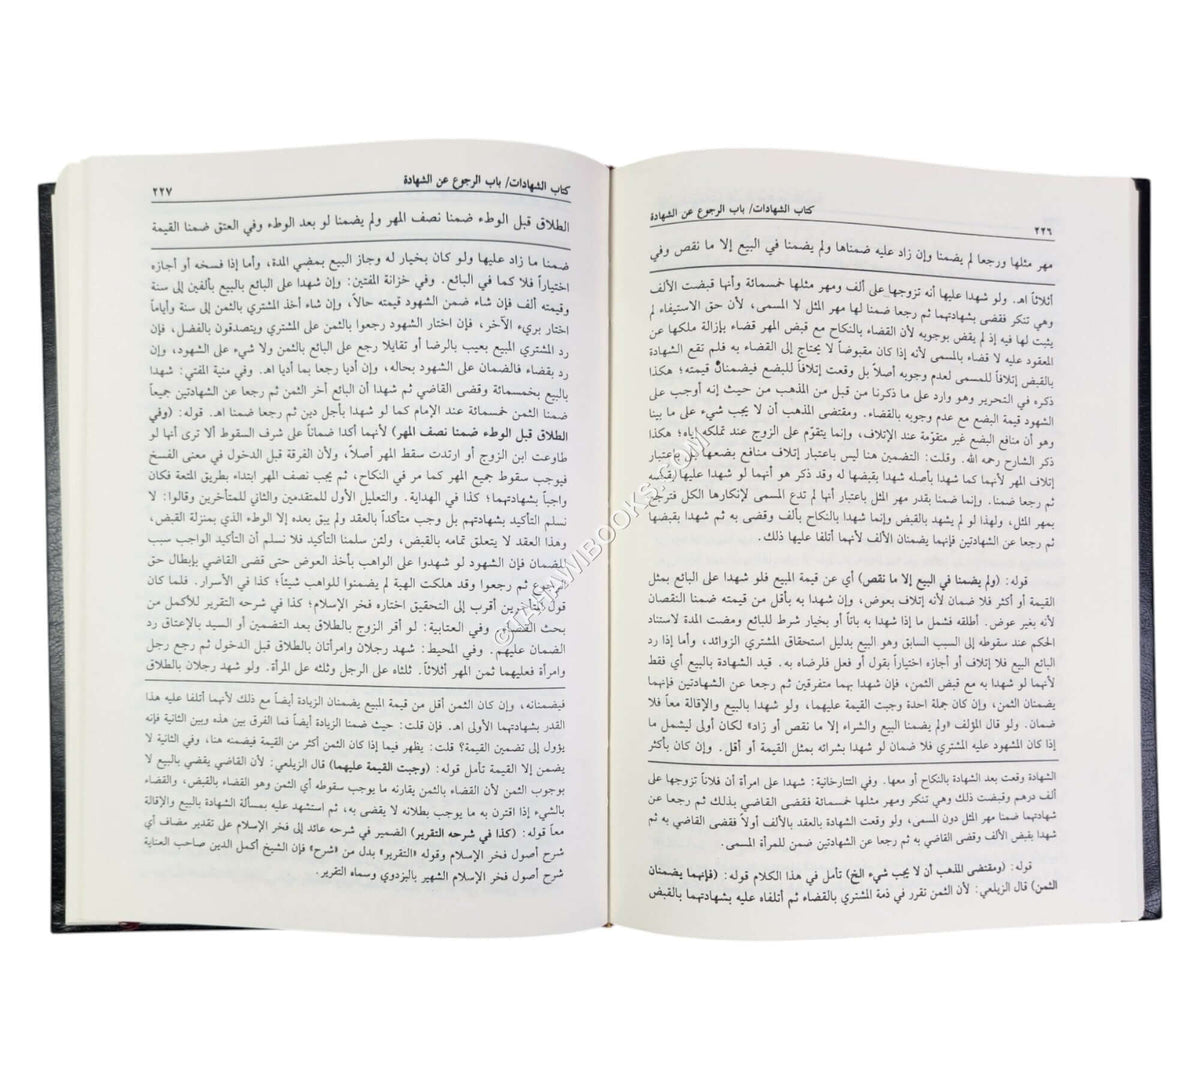 كتاب الشهادات/ باب الرجوع عن الشهادة
٢٢٦
مهر مثلها ورجعا لم يضمنا وإن زاد عليه ضمناها ولم يضمنا في البيع إلا ما نقص وفي
أثلاثاً اهـ. ولو شهدا عليها أنه تزوجها على ألف ومهر مثلها خمسمائة وأنها قبضت الألف
وهي تنكر فقضى بشهادتهما ثم رجعا ضمنا لها مهر المثل لا المسمى، لأن حق الاستيفاء لم
يثبت لها فيه إذ لم يقض بوجوبه لأن القضاء بالنكاح مع قبض المهر قضاء بإزالة ملكها عن
المعقود عليه لا قضاء بالمسمى لأنه إذا كان مقبوضاً لا يحتاج إلى القضاء به فلم تقع الشهادة
بالقبض إتلافاً للمسمى لعدم وجوبه أصلاً بل وقعت إتلافاً للبضع فيضمنان قيمته؛ هكذا
ذكره في التحرير وهو وارد على ما ذكرنا من قبل من المذهب من حيث إنه أوجب على
الشهود قيمة البضع مع عدم وجوبه بالقضاء. ومقتضى المذهب أن لا يجب شيء على ما بينا
وهو أن منافع البضع غير متقوّمة عند الإتلاف، وإنما يتقوّم على الزوج عند تملكه إياه؛ هكذا
ذكر الشارح رحمه الله. وقلت: التضمين هنا ليس باعتبار إتلاف منافع بضعها بل باعتبار
إتلاف المهر لأنهما كما شهدا بأصله شهدا بقبضها له وقد ذكر هو أنهما لو شهدا عليها بقبضه
ثم رجعا ضمنا. وإنما ضمنا بقدر مهر المثل باعتبار أنها لم تدع المسمى لإنكارها الكل فترجع
بمهر المثل، ولهذا لو لم يشهد بالقبض وإنما شهدا بالنكاح بألف وقضى به ثم شهدا بقبضها
ثم رجعا عن الشهادتين فإنهما يضمنان الألف لأنهما أتلفا عليها ذلك.
قوله: (ولم يضمنا في البيع إلا ما نقص) أي عن قيمة المبيع فلو شهدا على البائع بمثل
القيمة أو أكثر فلا ضمان لأنه إتلاف بعوض، وإن شهدا به بأقل من قيمته ضمنا النقصان
لأنه بغير عوض. أطلقه فشمل ما إذا شهدا به باتاً أو بخيار شرط للبائع ومضت المدة لاستناد
الحكم عند سقوطه إلى السبب السابق وهو البيع بدليل استحقاق المشتري الزوائد، وأما إذا رد
البائع البيع فلا إتلاف أو أجازه اختياراً بقول أو فعل فلرضاه به. قيد الشهادة بالبيع أي فقط
لأنهما لو شهدا به مع قبض الثمن، فإن شهدا بهما متفرقين ثم رجعا عن الشهادتين فإنهما
يضمنان الثمن، وإن كان جملة احدة وجبت القيمة عليهما، ولو شهدا بالبيع والإقالة معاً فلا
ضمان. ولو قال المؤلف «ولم يضمنا البيع والشراء إلا ما نقص أو زاد» لكان أولى ليشمل ما
إذا كان المشهود عليه المشتري فلا ضمان لو شهدا بشرائه بمثل القيمة أو أقل. وإن كان بأكثر
الشهادة وقعت بعد الشهادة بالنكاح أو معها. وفي التتارخانية: شهدا على امرأة أن فلاناً تزوجها على
ألف درهم وقبضت ذلك وهي تنكر ومهر مثلها خمسمائة فقضى القاضي بذلك ثم رجعا عن
شهادتهما ضمنا مهر المثل دون المسمى، ولو شهدا بالعقد بالألف أولاً فقضى القاضي به ثم
شهدا بقبض الألف وقضى القاضي به ثم رجعا عن الشهادتين ضمن للمرأة المسمى.
قوله: (ومقتضى المذهب أن لا يجب شيء الخ) تأمل في هذا الكلام قوله: (فإنهما يضمنان
الثمن) قال الزيلعي: لأن الثمن تقرر في ذمة المشتري بالقضاء ثم أتلفاه عليه بشهادتهما بالقبض
كتاب الشهادات/ باب الرجوع عن الشهادة
٢٢٧
الطلاق قبل الوطء ضمنا نصف المهر ولم يضمنا لو بعد الوطء وفي العتق ضمنا القيمة
ضمنا ما زاد عليها ولو كان بخيار له وجاز البيع بمضي المدة، وأما إذا فسخه أو أجازه
اختياراً فلا كما في البائع. وفي خزانة المفتين: وإن شهدا على البائع بالبيع بألفين إلى سنة
وقيمته ألف فإن شاء ضمن الشهود قيمته حالاً، وإن شاء أخذ المشتري بالثمن إلى سنة وأياماً
اختار بريء الآخر، فإن اختار الشهود رجعوا بالثمن على المشتري ويتصدقون بالفضل، فإن
رد المشتري المبيع بعيب بالرضا أو تقايلا رجع على البائع بالثمن ولا شيء على الشهود، وإن
رد بقضاء فالضمان على الشهود بحاله، وإن أديا رجعا بما أديا اهـ. وفي منية المفتي: شهدا
بالبيع بخمسمائة وقضى القاضي ثم شهدا أن البائع أخر الثمن ثم رجعا عن الشهادتين جميعاً
ضمنا الثمن خمسمائة عند الإمام كما لو شهدا بأجل دين ثم رجعا ضمنا اهـ. قوله: (وفي
الطلاق قبل الوطء ضمنا نصف المهر) لأنهما أكدا ضماناً على شرف السقوط ألا ترى أنها لو
طاوعت ابن الزوج أو ارتدت سقط المهر أصلاً، ولأن الفرقة قبل الدخول في معنى الفسخ
فيوجب سقوط جميع المهر كما مر في النكاح، ثم يجب نصف المهر ابتداء بطريق المتعة فكان
واجباً بشهادتهما؛ كذا في الهداية. والتعليل الأول للمتقدمين والثاني للمتأخرين وقالوا: لا
نسلم التأكيد بشهادتهم بل وجب متأكداً بالعقد ولم يبق بعده إلا الوطء الذي بمنزلة القبض،
وهذا العقد لا يتعلق تمامه بالقبض، ولئن سلمنا التأكيد فلا نسلم أن التأكيد الواجب سبب
للضمان فإن الشهود لو شهدوا على الواهب بأخذ العوض حتى قضى القاضي بإبطال حق
الرجوع ثم رجعوا وقد هلكت الهبة لم يضمنوا للواهب شيئاً؛ كذا في الأسرار. فلما كان
قول المتأخرين أقرب إلى التحقيق اختاره فخر الإسلام؛ كذا في شرحه التقرير للأكمل من
بحث القضاء. وفي العتابية: لو أقر الزوج بالطلاق بعد التضمين أو السيد بالإعتاق رد
الضمان عليهم. وفي المحيط: شهد رجلان وامرأتان بالطلاق قبل الدخول ثم رجع رجل
وامرأة فعليهما ثمن المهر أثلاثاً. ثلثاه على الرجل وثلثه على المرأة. ولو شهد رجلان بالطلاق
فيضمنانه، وإن كان الثمن أقل من قيمة المبيع يضمنان الزيادة أيضاً مع ذلك لأنهما أتلفا عليه هذا
القدر بشهادتهما الأولى اهـ. فإن قلت: حيث ضمنا الزيادة أيضاً فما الفرق بين هذه وبين الثانية فإنه
يؤول إلى تضمين القيمة؟ قلت: يظهر فيما إذا كان الثمن أكثر من القيمة فيضمنه هنا، وفي الثانية لا
يضمن إلا القيمة تأمل قوله: (وجبت القيمة عليهما) قال الزيلعي: لأن القاضي يقضي بالبيع لا
بوجوب الثمن لأن القضاء بالثمن يقارنه ما يوجب سقوطه أي الثمن وهو القضاء بالقبض، والقضاء
بالشيء إذا اقترن به ما يوجب بطلانه لا يقضى به، ثم استشهد عليه بمسألة الشهادة بالبيع والإقالة
معاً قوله: (كذا في شرحه التقرير) الضمير في شرحه عائد إلى فخر الإسلام على تقدير مضاف أي
شرح أصول فخر الإسلام وقوله «التقرير» بدل من «شرح» فإن الشيخ أكمل الدين صاحب العناية
شرح أصول فخر الإسلام الشهير بالبزدوي وسماه التقرير.